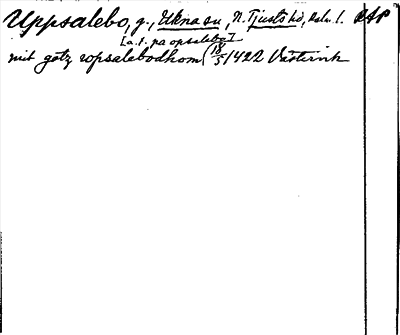 Uppsalebo, g., Ukna sn, N. Tjusts hd, Kalm. l. RAP
[a.t. pa opsalebo]
mit gotz vpsalebodhom (18/5 1422 Västervik